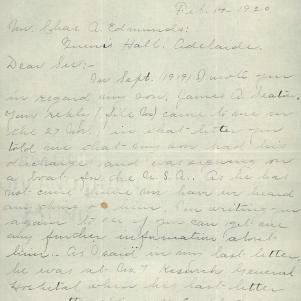 Feb. 14 - 1920
Mr. Chas. A. Edmunds:
Hall. Adelaide.
Dear Sir:-
In Sept. 1919 I wrote you
in regard my son, James A.
Your reply (file ) came to me on
the 27 . in that letter you
told me that my son had his
discharge and was on
a boat for the U.S.A. As he has
not come home nor have we heard
anything of him. I'm writing you
again to see if you can get me
any further information about
him. As I said in my last letter,
he was at Keswick General
Hospital when his last letter